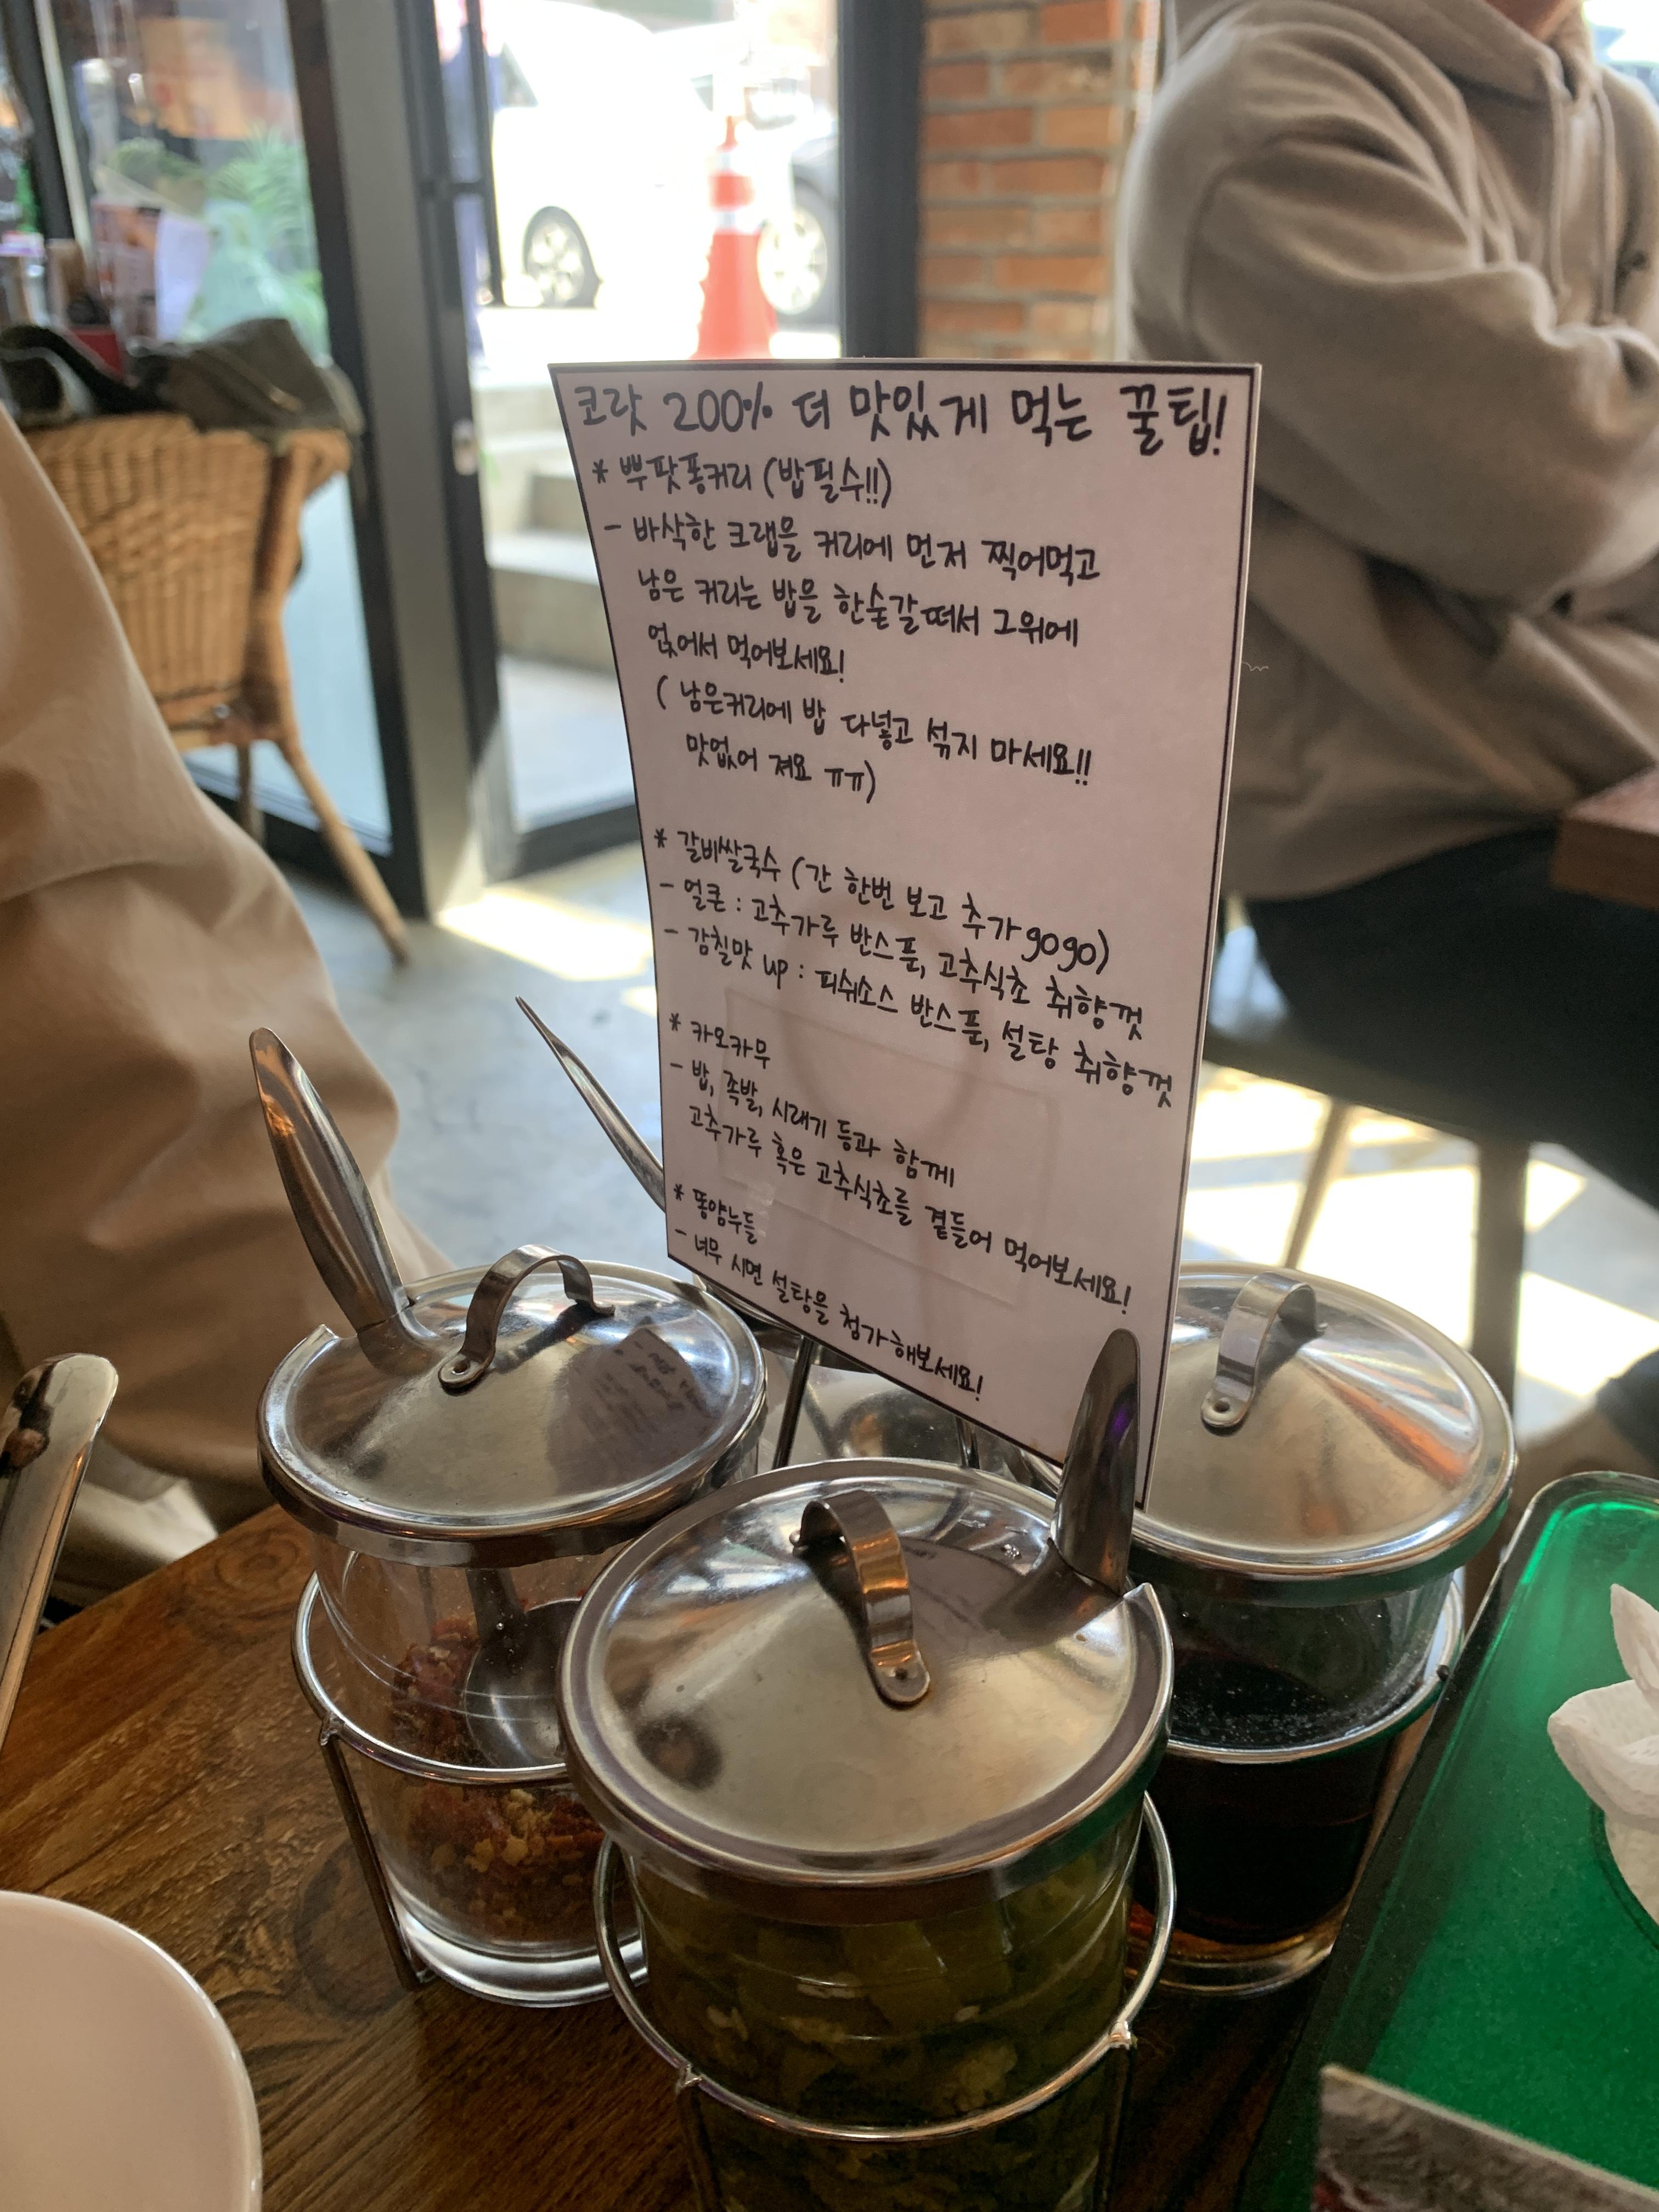 코랏 200% 더 맛있게 먹는 꿀팁!
* 뿌팟퐁커리 (밥필수!!)
- 바삭한 크랩을 커리에 먼저 찍어먹고
남은 커리는 밥을 한숟갈떠서 그위에
얹어서 먹어보세요!
( 남은커리에 밥 다넣고 섞지 마세요!!
맛없어 져요 ㅠㅠ)
* 갈비쌀국수 (간 한번 보고 추가gogo)
- 얼큰 : 고추가루 반스푼, 고추식초 취향껏
- 감칠맛 up : 피쉬소스 반스푼, 설탕 취향껏
* 카오카무
- 밥, 족발, 시래기 등과 함께
고추가루 혹은 고추식초를 곁들어 먹어보세요!
* 똠얌누들
- 너무 시면 설탕을 첨가해보세요!